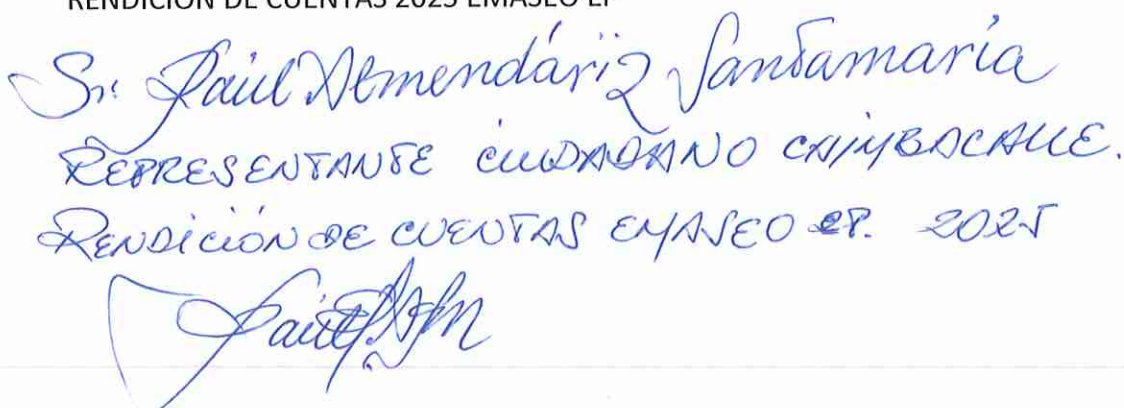 RENDICIÓN DE CUENTAS 2025 EMASEO EP
Sr. Raúl Almendáriz Santamaría
REPRESENTANTE CIUDADANO CHIMBACALLE.
RENDICIÓN DE CUENTAS EMASEO EP. 2025
Raúl